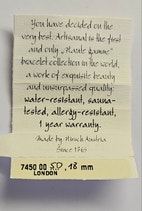 You have decided on the
very best. Artisanal is the first
and only „Haute gamme"
bracelet collection in the world,
a work of exquisite beauty
and unsurpassed quality:
water-resistant, sauna-
tested, allergy-resistant,
1 year warranty.
Made by Hirsch Austria
Since 1765
7450 00 50, 18 mm
LONDON